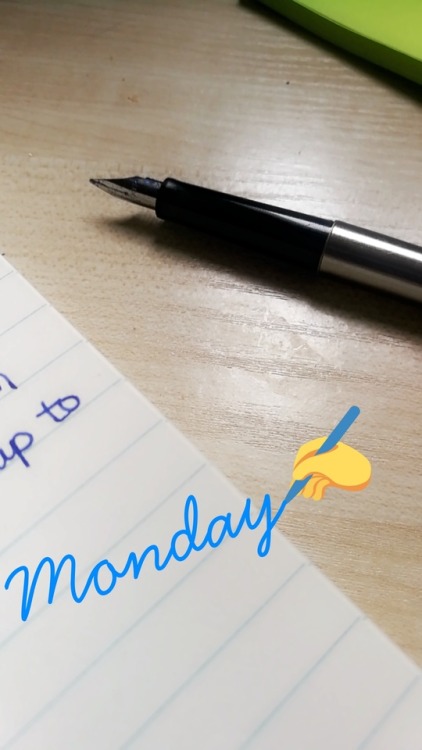 up to
Monday